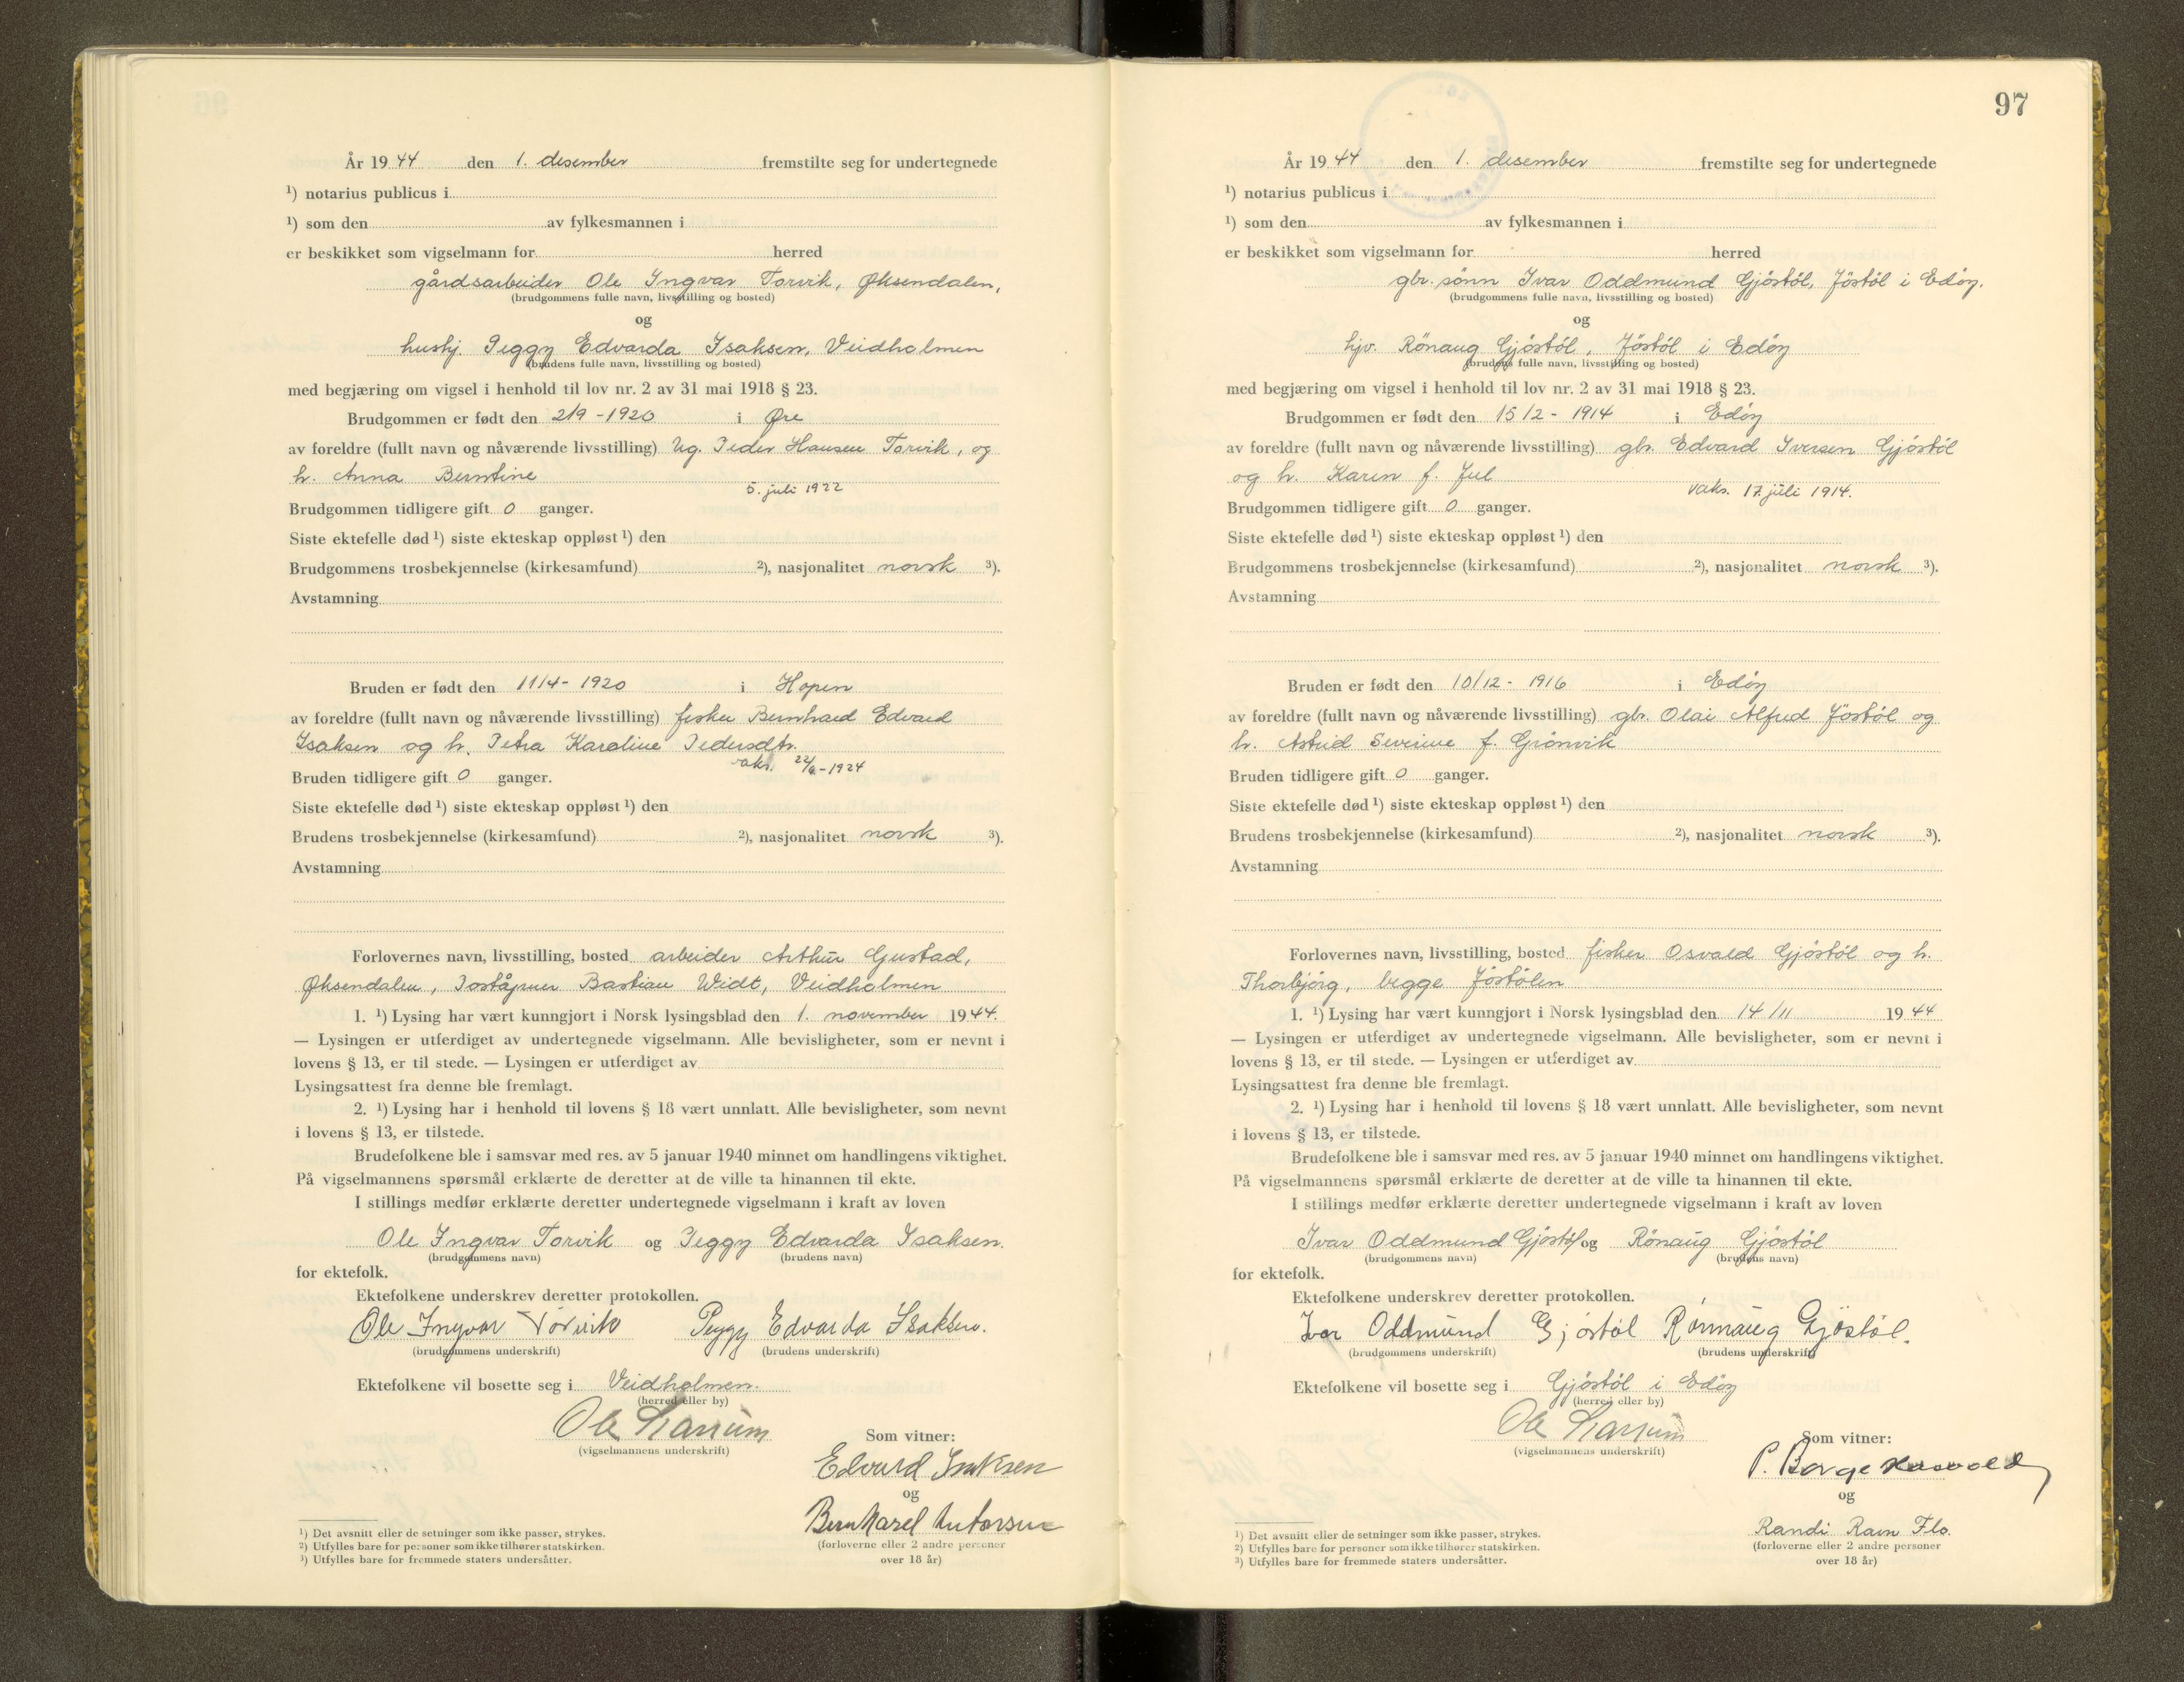 År 19 44 den 1. desember fremstilte seg for undertegnede
¹) notarius publicus i
¹) som den av fylkesmannen i
er beskikket som vigselmann for herred
gårdsarbeider Ole Ingvar Torvik, Øksendalen,
(brudgommens fulle navn, livsstilling og bosted)
og
hushj. Peggy Edvarda Isaksen, Veidholmen
(brudens fulle navn, livsstilling og bosted)
med begjæring om vigsel i henhold til lov nr. 2 av 31 mai 1918 § 23.
Brudgommen er født den 2/9 - 1920 i Øre
av foreldre (fullt navn og nåværende livsstilling) Ug. Peder Hansen Torvik, og
h. Anna Berntine
5. juli 1922
Brudgommen tidligere gift 0 ganger.
Siste ektefelle død ¹) siste ekteskap oppløst ¹) den
Brudgommens trosbekjennelse (kirkesamfund) ²), nasjonalitet norsk ³).
Avstamning
Bruden er født den 11/4 - 1920 i Hopen
av foreldre (fullt navn og nåværende livsstilling) fisker Bernhard Edvard
Isaksen og h. Petra Karoline Pedersdtr.
vaks. 22/6 - 1924
Bruden tidligere gift 0 ganger.
Siste ektefelle død ¹) siste ekteskap oppløst ¹) den
Brudens trosbekjennelse (kirkesamfund) ²), nasjonalitet norsk ³).
Avstamning
Forlovernes navn, livsstilling, bosted arbeider Arthur Gustad,
Øksendalen, Poståpner Bastian Widt, Veidholmen
1. ¹) Lysing har vært kunngjort i Norsk lysingsblad den 1. november 1944.
— Lysingen er utferdiget av undertegnede vigselmann. Alle bevisligheter, som er nevnt i
lovens § 13, er til stede. — Lysingen er utferdiget av
Lysingsattest fra denne ble fremlagt.
2. ¹) Lysing har i henhold til lovens § 18 vært unnlatt. Alle bevisligheter, som nevnt
i lovens § 13, er tilstede.
Brudefolkene ble i samsvar med res. av 5 januar 1940 minnet om handlingens viktighet.
På vigselmannens spørsmål erklærte de deretter at de ville ta hinannen til ekte.
I stillings medfør erklærte deretter undertegnede vigselmann i kraft av loven
Ole Ingvar Torvik og Peggy Edvarda Isaksen.
(brudgommens navn) (brudens navn)
for ektefolk.
Ektefolkene underskrev deretter protokollen.
Ole Ingvar Torvik Peggy Edvarda Isaksen.
(brudgommens underskrift) (brudens underskrift)
Ektefolkene vil bosette seg i Veidholmen.
(herred eller by)
Ole
(vigselmannens underskrift)
Som vitner:
Edvard Isaksen
og
Bernhard
(forloverne eller 2 andre personer
over 18 år)
¹) Det avsnitt eller de setninger som ikke passer, strykes.
²) Utfylles bare for personer som ikke tilhører statskirken.
³) Utfylles bare for fremmede staters undersåtter.
97
År 19 44 den 1. desember fremstilte seg for undertegnede
¹) notarius publicus i
¹) som den av fylkesmannen i
er beskikket som vigselmann for herred
gbr. sønn Ivar Oddmund Gjöstöl, Jöstöl i Edöy.
(brudgommens fulle navn, livsstilling og bosted)
og
hjv. Rönaug Gjöstöl, Jöstöl i Edöy
(brudens fulle navn, livsstilling og bosted)
med begjæring om vigsel i henhold til lov nr. 2 av 31 mai 1918 § 23.
Brudgommen er født den 15/2 - 1914 i Edöy
av foreldre (fullt navn og nåværende livsstilling) gbr. Edvard Iversen Gjöstöl
og h. Karen f. Jul
vaks. 17. juli 1914.
Brudgommen tidligere gift 0 ganger.
Siste ektefelle død ¹) siste ekteskap oppløst ¹) den
Brudgommens trosbekjennelse (kirkesamfund) ²), nasjonalitet norsk ³).
Avstamning
Bruden er født den 10/12 - 1916 i Edöy
av foreldre (fullt navn og nåværende livsstilling) gbr. Olai Alfred Jöstöl og
h. Astrid Severine f. Grönvik
Bruden tidligere gift 0 ganger.
Siste ektefelle død ¹) siste ekteskap oppløst ¹) den
Brudens trosbekjennelse (kirkesamfund) ²), nasjonalitet norsk ³).
Avstamning
Forlovernes navn, livsstilling, bosted fisker Osvald Gjöstöl og h.
Thorbjörg, begge Jöstölen
1. ¹) Lysing har vært kunngjort i Norsk lysingsblad den 14/11 19 44
— Lysingen er utferdiget av undertegnede vigselmann. Alle bevisligheter, som er nevnt i
lovens § 13, er til stede. — Lysingen er utferdiget av
Lysingsattest fra denne ble fremlagt.
2. ¹) Lysing har i henhold til lovens § 18 vært unnlatt. Alle bevisligheter, som nevnt
i lovens § 13, er tilstede.
Brudefolkene ble i samsvar med res. av 5 januar 1940 minnet om handlingens viktighet.
På vigselmannens spørsmål erklærte de deretter at de ville ta hinannen til ekte.
I stillings medfør erklærte deretter undertegnede vigselmann i kraft av loven
Ivar Oddmund Gjöstöl og Rönaug Gjöstöl
(brudgommens navn) (brudens navn)
for ektefolk.
Ektefolkene underskrev deretter protokollen.
Ivar Oddmund Gjöstöl Rönnaug Gjöstöl.
(brudgommens underskrift) (brudens underskrift)
Ektefolkene vil bosette seg i Gjöstöl i Edöy
(herred eller by)
Ole
(vigselmannens underskrift)
Som vitner:
P. Borge
og
Randi Ravn Flo.
(forloverne eller 2 andre personer
over 18 år)
¹) Det avsnitt eller de setninger som ikke passer, strykes.
²) Utfylles bare for personer som ikke tilhører statskirken.
³) Utfylles bare for fremmede staters undersåtter.